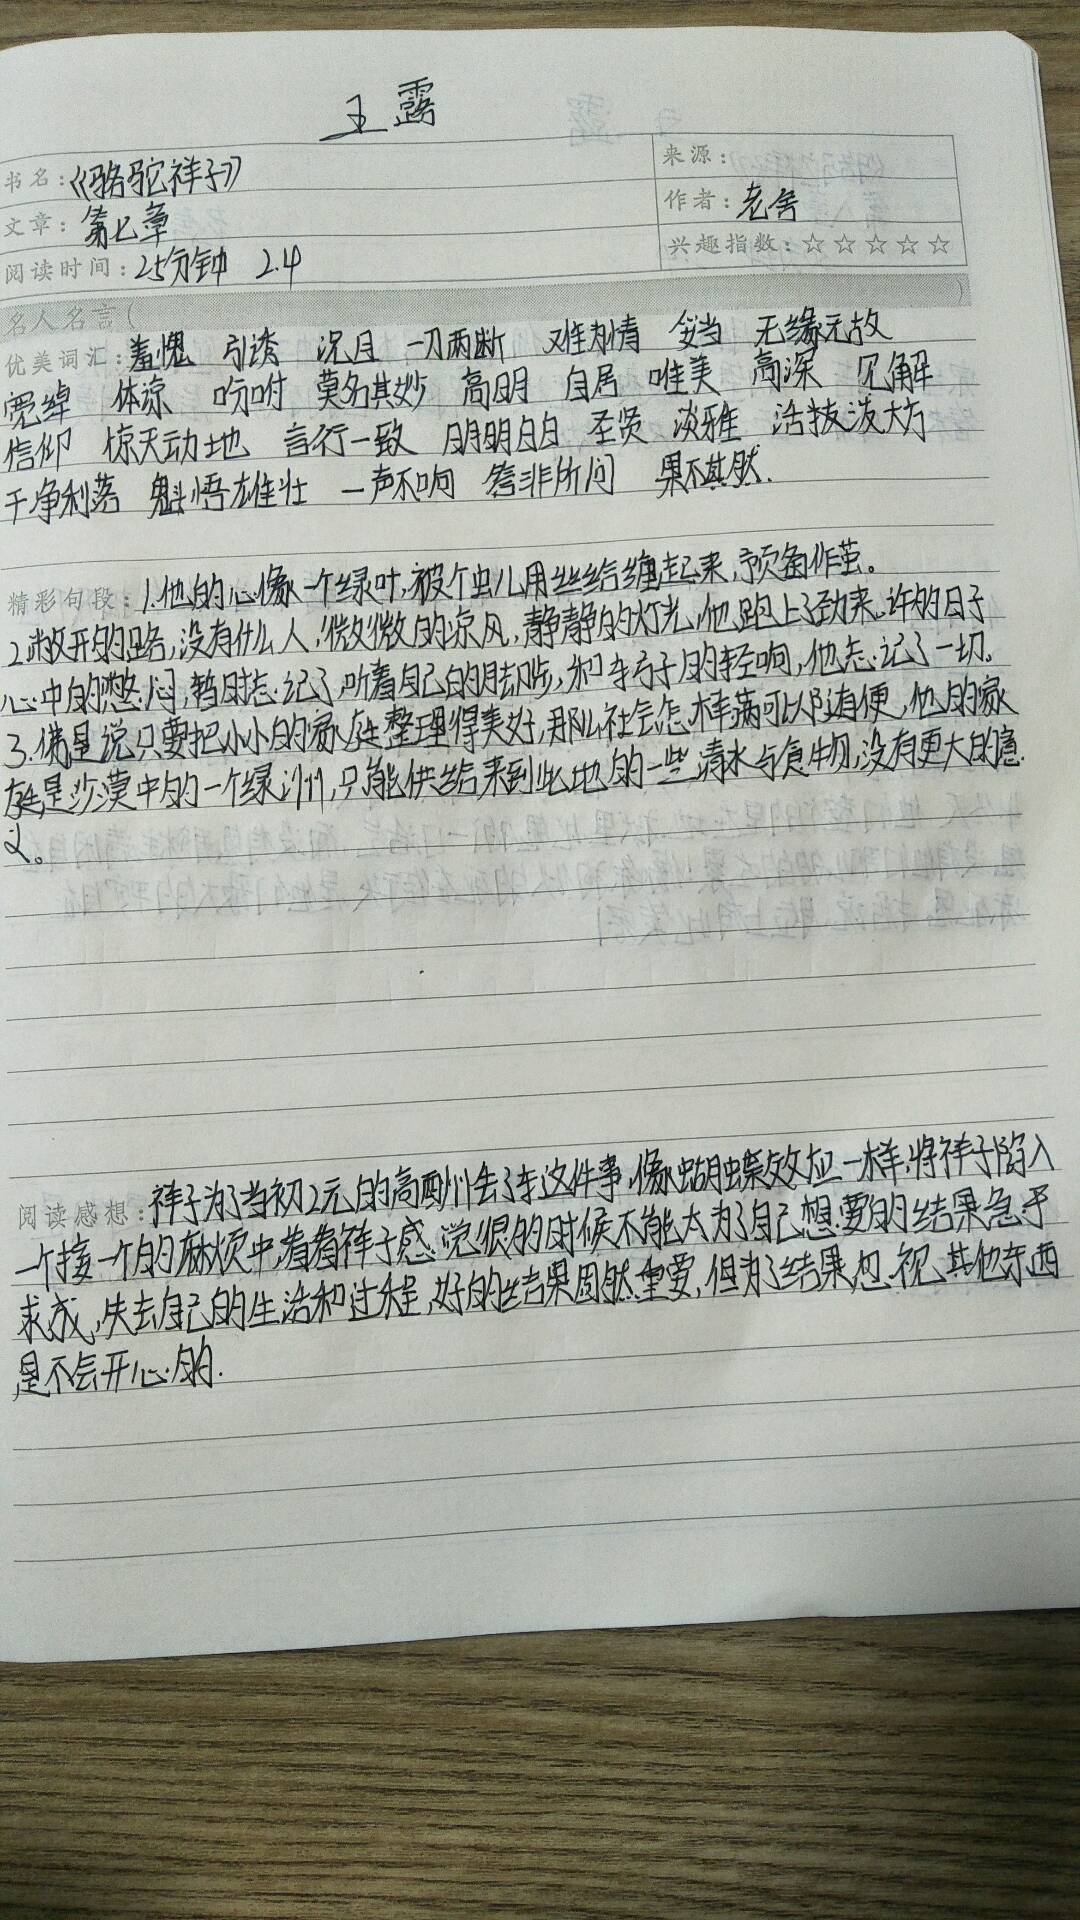 王露
书名：《骆驼祥子》
来源：
文章：第七章
作者：老舍
阅读时间：25分钟 2.4
兴趣指数：☆☆☆☆☆
名人名言（ ）
优美词汇：羞愧 引诱 沉 一刀两断 难为情 妥当 无缘无故
宽绰 体谅 吩咐 莫名其妙 高明 自居 唯美 高深 见解
信仰 惊天动地 言行一致 明明白白 圣贤 淡雅 活拔泼大方
干净利落 魁悟雄壮 一声不响 答非所问 果不其然.
精彩句段：1.他的心像一个绿叶,被个虫儿用丝给缠起来,预备作茧。
2.敞开的路,没有什么人,微微的凉风,静静的灯光,他跑上了劲来。许多的日子
心中的憋闷,暂时忘记了,听着自己的脚步,和车弓子的轻响,他忘记了一切。
3.佛是说只要把小小的家庭整理得美好,那么社会怎样满可以随便,他的家
庭是沙漠中的一个绿洲,只能供给来到此地的一些清水与食物,没有更大的意
义。
阅读感想：祥子为了当初2元的高酬州丢了车这件事,像蝴蝶效应一样,将祥子陷入
一个接一个的麻烦中,看着祥子感觉很的时候不能太为了自己想要的结果急于
求成,失去自己的生活和过程,好的结果固然重要,但为了结果,忽视其他东西
是不会开心的.